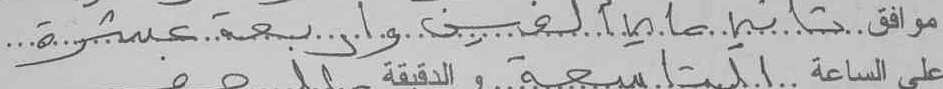 موافق ثاني ماي ألفين وأربعة عشرة
على الساعة التاسعة و الدقيقة